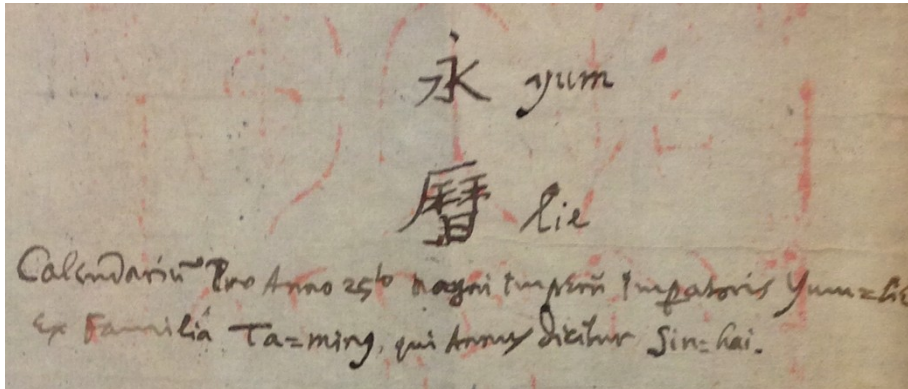 永 yum
曆 lie
Calendariū Pro Anno 25to magni Imperii Imperatoris Yum=lie
ex Familiâ Ta=ming, qui Annus dicitur Sin=hai.